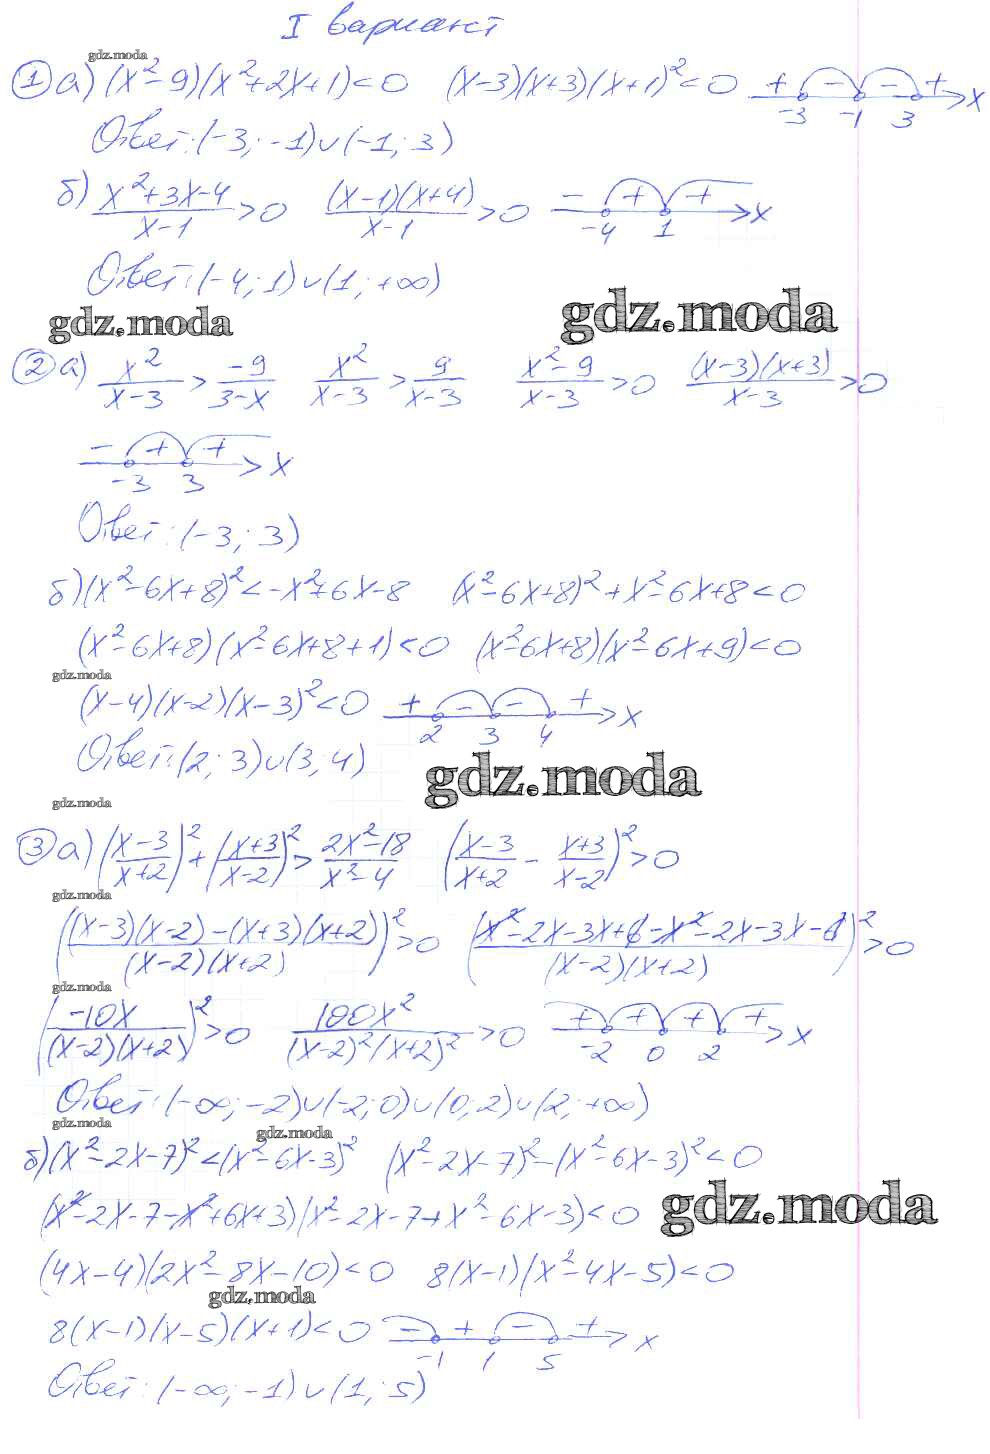 I вариант
gdz.moda
① а) (x²-9)(x²+2x+1)<0   (x-3)(x+3)(x+1)²<0   + - - + x
-3 -1 3
Ответ: (-3; -1)∪(-1; 3)
б) (x²+3x-4)/(x-1) >0   ((x-1)(x+4))/(x-1) >0   - + + x
-4 1
Ответ: (-4; 1)∪(1; +∞)
gdz.moda gdz.moda
② а) x²/(x-3) > -9/(3-x)   x²/(x-3) > 9/(x-3)   (x²-9)/(x-3) >0   ((x-3)(x+3))/(x-3) >0
- + + x
-3 3
Ответ: (-3; 3)
б) (x²-6x+8)²<-x²+6x-8   (x²-6x+8)²+x²-6x+8<0
(x²-6x+8)(x²-6x+8+1)<0   (x²-6x+8)(x²-6x+9)<0
gdz.moda
(x-4)(x-2)(x-3)²<0   + - - + x
2 3 4
Ответ: (2; 3)∪(3; 4)
gdz.moda
gdz.moda
③ а) ((x-3)/(x+2))²+((x+3)/(x-2))²>(2x²-18)/(x²-4)   ((x-3)/(x+2) - (x+3)/(x-2))²>0
gdz.moda
(((x-3)(x-2)-(x+3)(x+2))/((x-2)(x+2)))²>0   ((x²-2x-3x+6-x²-2x-3x-6)/((x-2)(x+2)))²>0
gdz.moda
(-10x/((x-2)(x+2)))²>0   100x²/((x-2)²(x+2)²) >0   + + + + x
-2 0 2
Ответ: (-∞; -2)∪(-2; 0)∪(0; 2)∪(2; +∞)
gdz.moda gdz.moda
б) (x²-2x-7)²<(x²-6x-3)²   (x²-2x-7)²-(x²-6x-3)²<0
(x²-2x-7-x²+6x+3)(x²-2x-7+x²-6x-3)<0
gdz.moda
(4x-4)(2x²-8x-10)<0   8(x-1)(x²-4x-5)<0
gdz.moda
8(x-1)(x-5)(x+1)<0   - + - + x
-1 1 5
Ответ: (-∞; -1)∪(1; 5)